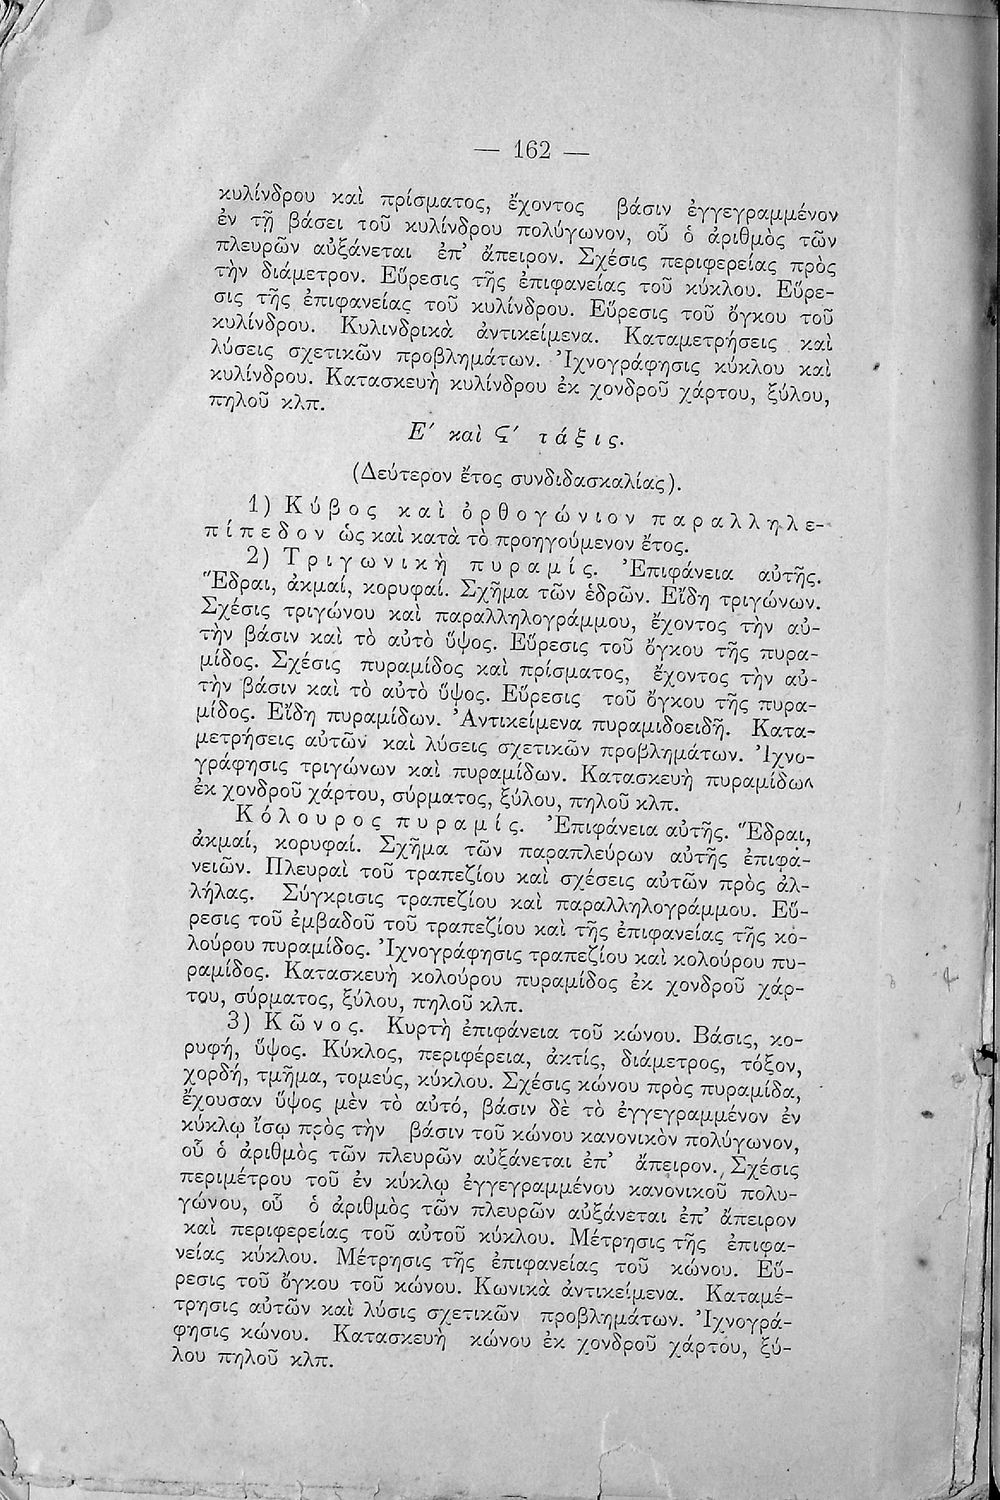 — 162 —
κυλίνδρου καὶ πρίσματος, ἔχοντος βάσιν ἐγγεγραμμένον
ἐν τῇ βάσει τοῦ κυλίνδρου πολύγωνον, οὗ ὁ ἀριθμὸς τῶν
πλευρῶν αὐξάνεται ἐπ' ἄπειρον. Σχέσις περιφερείας πρὸς
τὴν διάμετρον. Εὕρεσις τῆς ἐπιφανείας τοῦ κύκλου. Εὕρε-
σις τῆς ἐπιφανείας τοῦ κυλίνδρου. Εὕρεσις τοῦ ὄγκου τοῦ
κυλίνδρου. Κυλινδρικὰ ἀντικείμενα. Καταμετρήσεις καὶ
λύσεις σχετικῶν προβλημάτων. Ἰχνογράφησις κύκλου καὶ
κυλίνδρου. Κατασκευὴ κυλίνδρου ἐκ χονδροῦ χάρτου, ξύλου,
πηλοῦ κλπ.
Ε′ καὶ Ϛ′ τάξις.
(Δεύτερον ἔτος συνδιδασκαλίας).
1) Κύβος καὶ ὀρθογώνιον παραλληλε-
πίπεδον ὡς καὶ κατὰ τὸ προηγούμενον ἔτος.
2) Τριγωνικὴ πυραμίς. Ἐπιφάνεια αὐτῆς.
Ἕδραι, ἀκμαί, κορυφαί. Σχῆμα τῶν ἑδρῶν. Εἴδη τριγώνων.
Σχέσις τριγώνου καὶ παραλληλογράμμου, ἔχοντος τὴν αὐ-
τὴν βάσιν καὶ τὸ αὐτὸ ὕψος. Εὕρεσις τοῦ ὄγκου τῆς πυρα-
μίδος. Σχέσις πυραμίδος καὶ πρίσματος, ἔχοντος τὴν αὐ-
τὴν βάσιν καὶ τὸ αὐτὸ ὕψος. Εὕρεσις τοῦ ὄγκου τῆς πυρα-
μίδος. Εἴδη πυραμίδων. Ἀντικείμενα πυραμιδοειδῆ. Κατα-
μετρήσεις αὐτῶν καὶ λύσεις σχετικῶν προβλημάτων. Ἰχνο-
γράφησις τριγώνων καὶ πυραμίδων. Κατασκευὴ πυραμίδων
ἐκ χονδροῦ χάρτου, σύρματος, ξύλου, πηλοῦ κλπ.
Κόλουρος πυραμίς. Ἐπιφάνεια αὐτῆς. Ἕδραι,
ἀκμαί, κορυφαί. Σχῆμα τῶν παραπλεύρων αὐτῆς ἐπιφα-
νειῶν. Πλευραὶ τοῦ τραπεζίου καὶ σχέσεις αὐτῶν πρὸς ἀλ-
λήλας. Σύγκρισις τραπεζίου καὶ παραλληλογράμμου. Εὕ-
ρεσις τοῦ ἐμβαδοῦ τοῦ τραπεζίου καὶ τῆς ἐπιφανείας τῆς κο-
λούρου πυραμίδος. Ἰχνογράφησις τραπεζίου καὶ κολούρου πυ-
ραμίδος. Κατασκευὴ κολούρου πυραμίδος ἐκ χονδροῦ χάρ-
του, σύρματος, ξύλου, πηλοῦ κλπ.
3) Κῶνος. Κυρτὴ ἐπιφάνεια τοῦ κώνου. Βάσις, κο-
ρυφή, ὕψος. Κύκλος, περιφέρεια, ἀκτίς, διάμετρος, τόξον,
χορδή, τμῆμα, τομεύς, κύκλου. Σχέσις κώνου πρὸς πυραμίδα,
ἔχουσαν ὕψος μὲν τὸ αὐτό, βάσιν δὲ τὸ ἐγγεγραμμένον ἐν
κύκλῳ ἴσῳ πρὸς τὴν βάσιν τοῦ κώνου κανονικὸν πολύγωνον,
οὗ ὁ ἀριθμὸς τῶν πλευρῶν αὐξάνεται ἐπ' ἄπειρον. Σχέσις
περιμέτρου τοῦ ἐν κύκλῳ ἐγγεγραμμένου κανονικοῦ πολυ-
γώνου, οὗ ὁ ἀριθμὸς τῶν πλευρῶν αὐξάνεται ἐπ' ἄπειρον
καὶ περιφερείας τοῦ αὐτοῦ κύκλου. Μέτρησις τῆς ἐπιφα-
νείας κύκλου. Μέτρησις τῆς ἐπιφανείας τοῦ κώνου. Εὕ-
ρεσις τοῦ ὄγκου τοῦ κώνου. Κωνικὰ ἀντικείμενα. Καταμέ-
τρησις αὐτῶν καὶ λύσις σχετικῶν προβλημάτων. Ἰχνογρά-
φησις κώνου. Κατασκευὴ κώνου ἐκ χονδροῦ χάρτου, ξύ-
λου πηλοῦ κλπ.